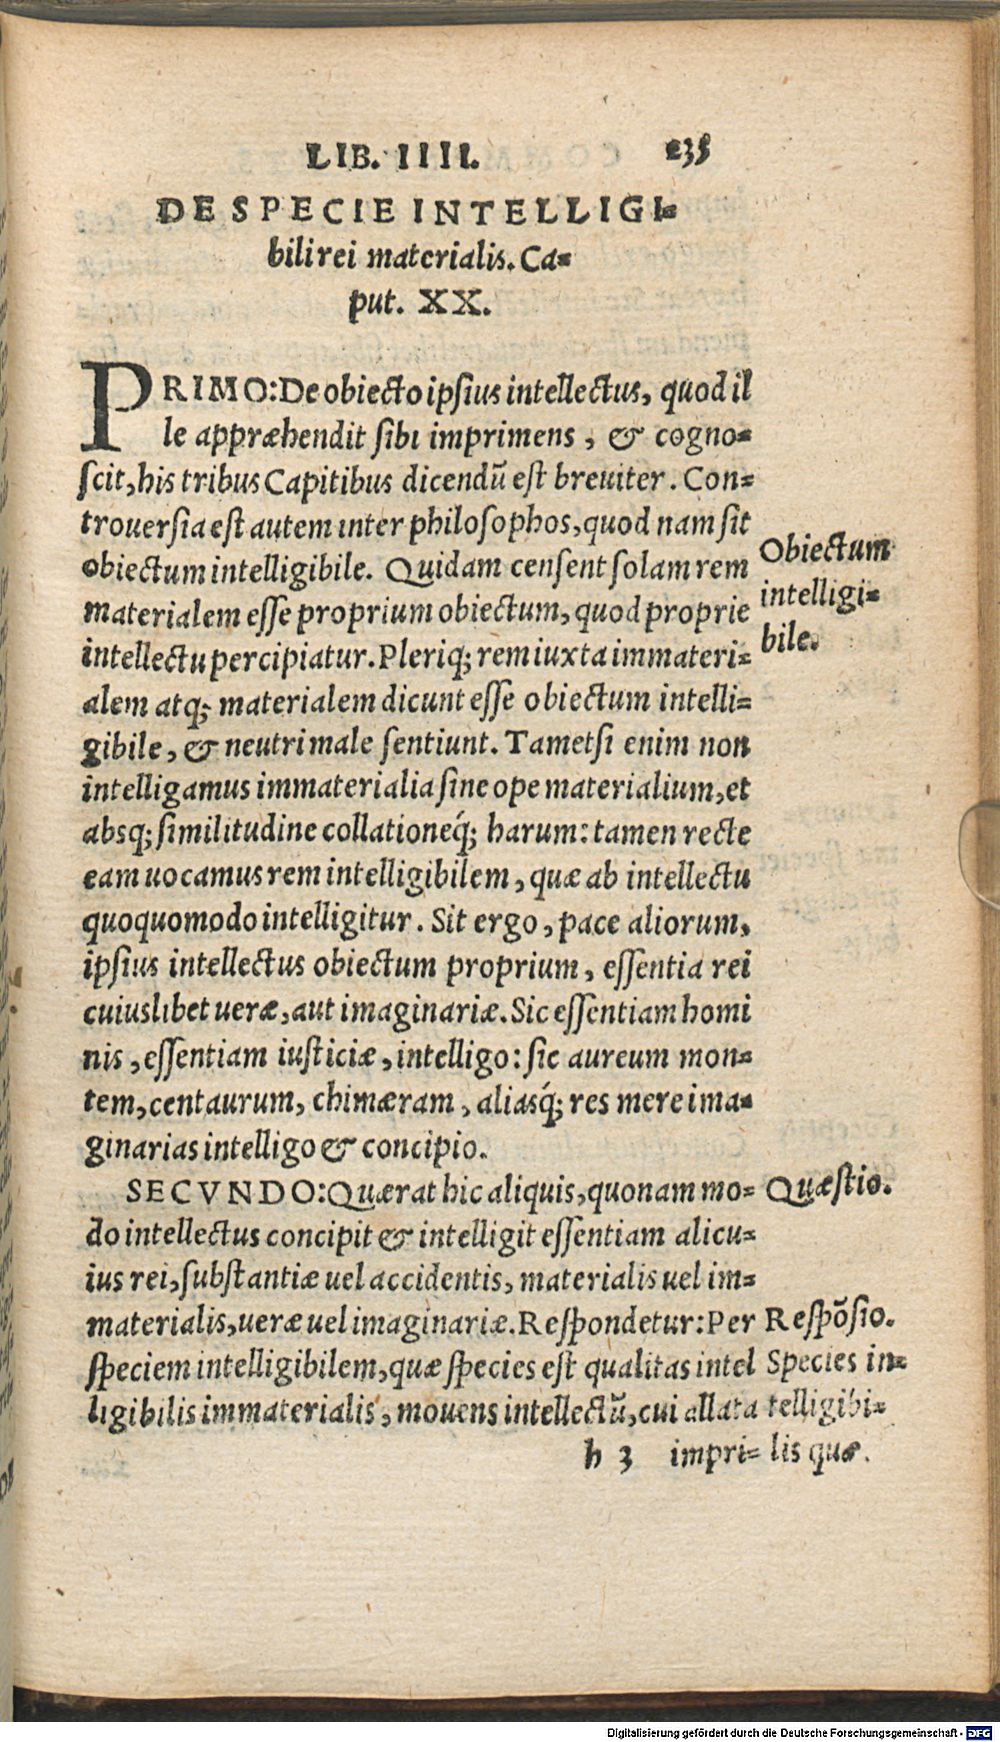 LIB. IIII. 235
DE SPECIE INTELLIGI-
bili rei materialis. Ca-
put. XX.
PRIMO: De obiecto ipsius intellectus, quod il
le appræhendit sibi imprimens, & cogno-
scit, his tribus Capitibus dicendū est breuiter. Con-
trouersia est autem inter philosophos, quod nam sit
obiectum intelligibile. Quidam censent solam rem
materialem esse proprium obiectum, quod proprie
intellectu percipiatur. Pleriq; rem iuxta immateri-
alem atq; materialem dicunt esse obiectum intelli-
gibile, & neutri male sentiunt. Tametsi enim non
intelligamus immaterialia sine ope materialium, et
absq; similitudine collationeq́; harum: tamen recte
eam uocamus rem intelligibilem, quæ ab intellectu
quoquomodo intelligitur. Sit ergo, pace aliorum,
ipsius intellectus obiectum proprium, essentia rei
cuiuslibet ueræ, aut imaginariæ. Sic essentiam homi
nis, essentiam iusticiæ, intelligo: sic aureum mon-
tem, centaurum, chimæram, aliasq́; res mere ima-
ginarias intelligo & concipio.
SECVNDO: Quærat hic aliquis, quonam mo-
do intellectus concipit & intelligit essentiam alicu-
ius rei, substantiæ uel accidentis, materialis uel im-
materialis, ueræ uel imaginariæ. Respondetur: Per
speciem intelligibilem, quæ species est qualitas intel
ligibilis immaterialis, mouens intellectū, cui allata
h 3 impri-
Obiectum
intelligi-
bile.
Quæstio.
Respōsio.
Species in-
telligibi-
lis quæ.
Digitalisierung gefördert durch die Deutsche Forschungsgemeinschaft - DFG